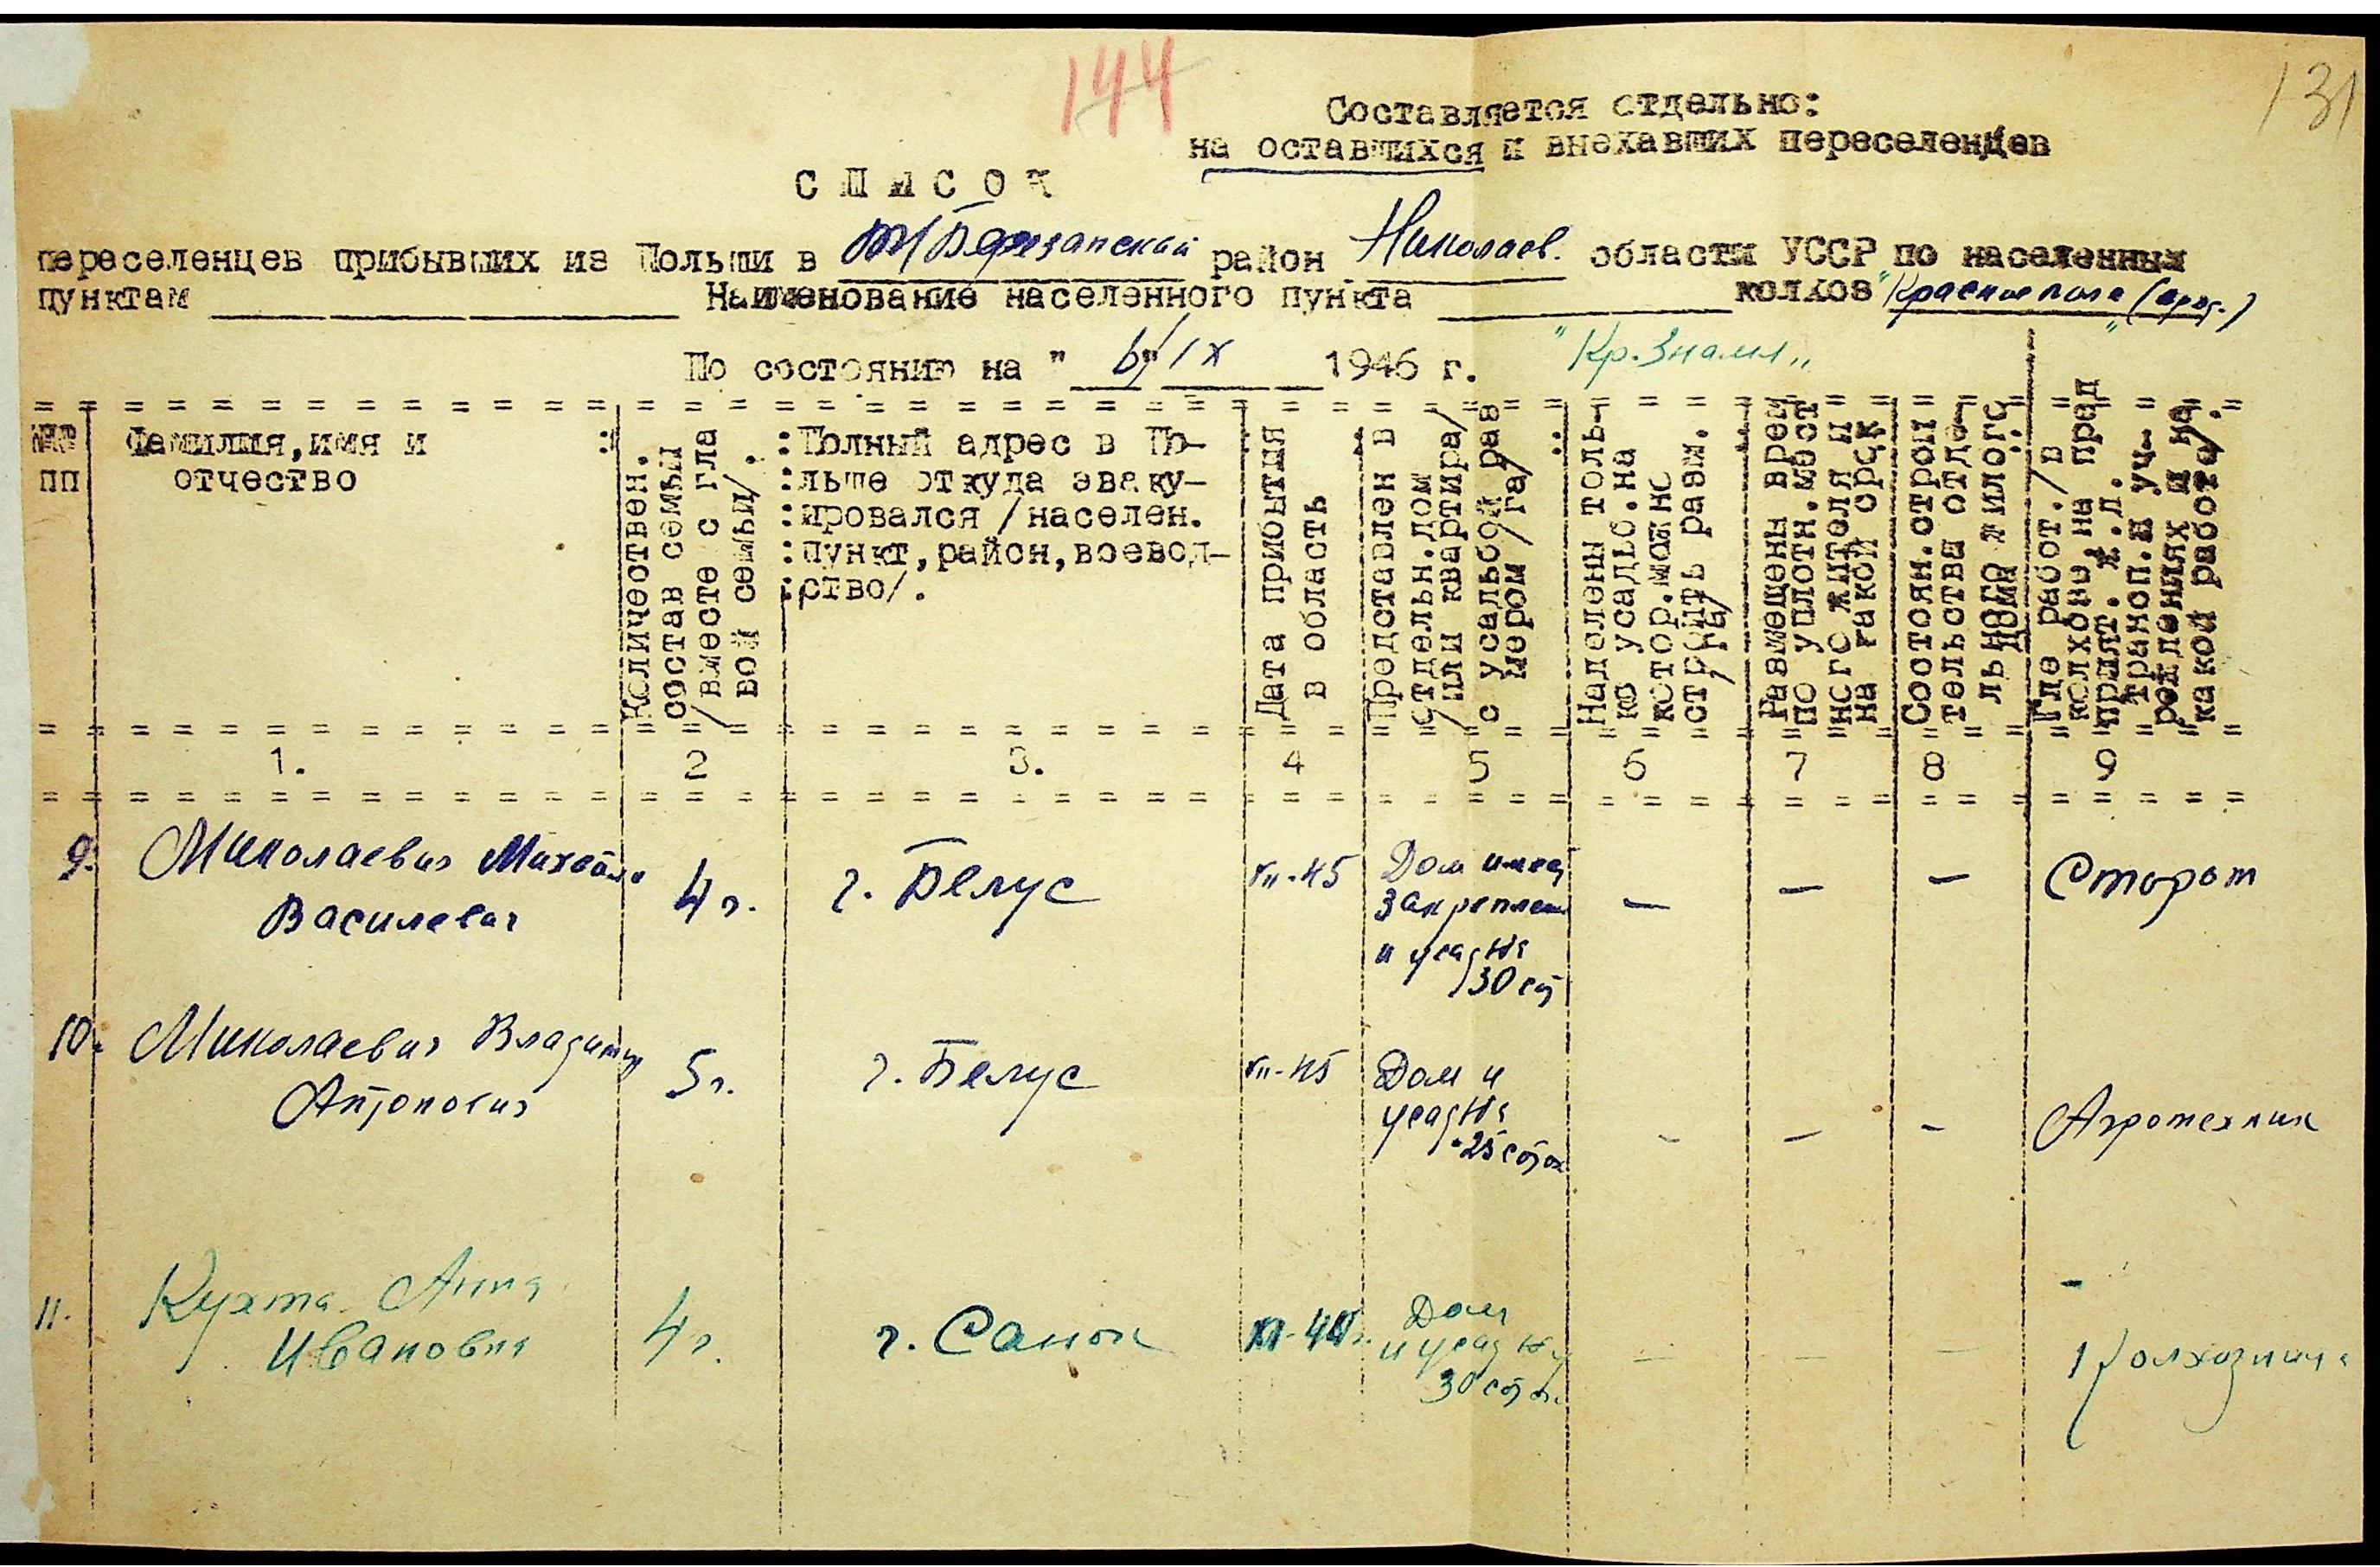 144
131
Составляется отдельно:
на оставшихся и внехавших переселенцев
С П И С О К
переселенцев прибывших из Польши в Березанский район Николаев. области УССР по населенным
пунктам Наименование населенного пункта колхоз "Красное поле"
"Кр. Знамя"
По состоянию на "6" IX 1946 г.
№№ пп
Фамилия, имя и
отчество
Количествен.
состав семьи
/вместе с гла
вой семьи/.
:Полный адрес в По-
:льше откуда эваку-
:ировался /населен.
:пункт, район, воевод-
:ство/.
Дата прибытия
в область
Представлен в
отдельн. дом
/или квартира/
с усадьбой раз
мером /га/
Наделены толь-
ко усадьб. на
котор. можно
строить разм.
/га/
Размещены врем
по уплотн. мест
ного жителя и
на какой срок
Состоян. строи
тельства отде-
льного жилого
дома
Где работ. /в
колхозе, на пред
прият. ж.д.
трансп. и уч-
реждениях и на
какой работе/.
1. 2 3. 4 5 6 7 8 9
9. Миколаевич Михайло 4 г. Белус VII-45 Дом имеет — — — Сторож
Василевич закреплен
и усадьба
30 сот
10. Миколаевич Владимир 5 г. Белус VII-45 Дом и - - - Агротехник
Антонович усадьба
25 соток
11. Кухта Анна 4 г. Санок XI-44 г. Дом - - - - Колхозница
Ивановна и усадьбу
30 сот.